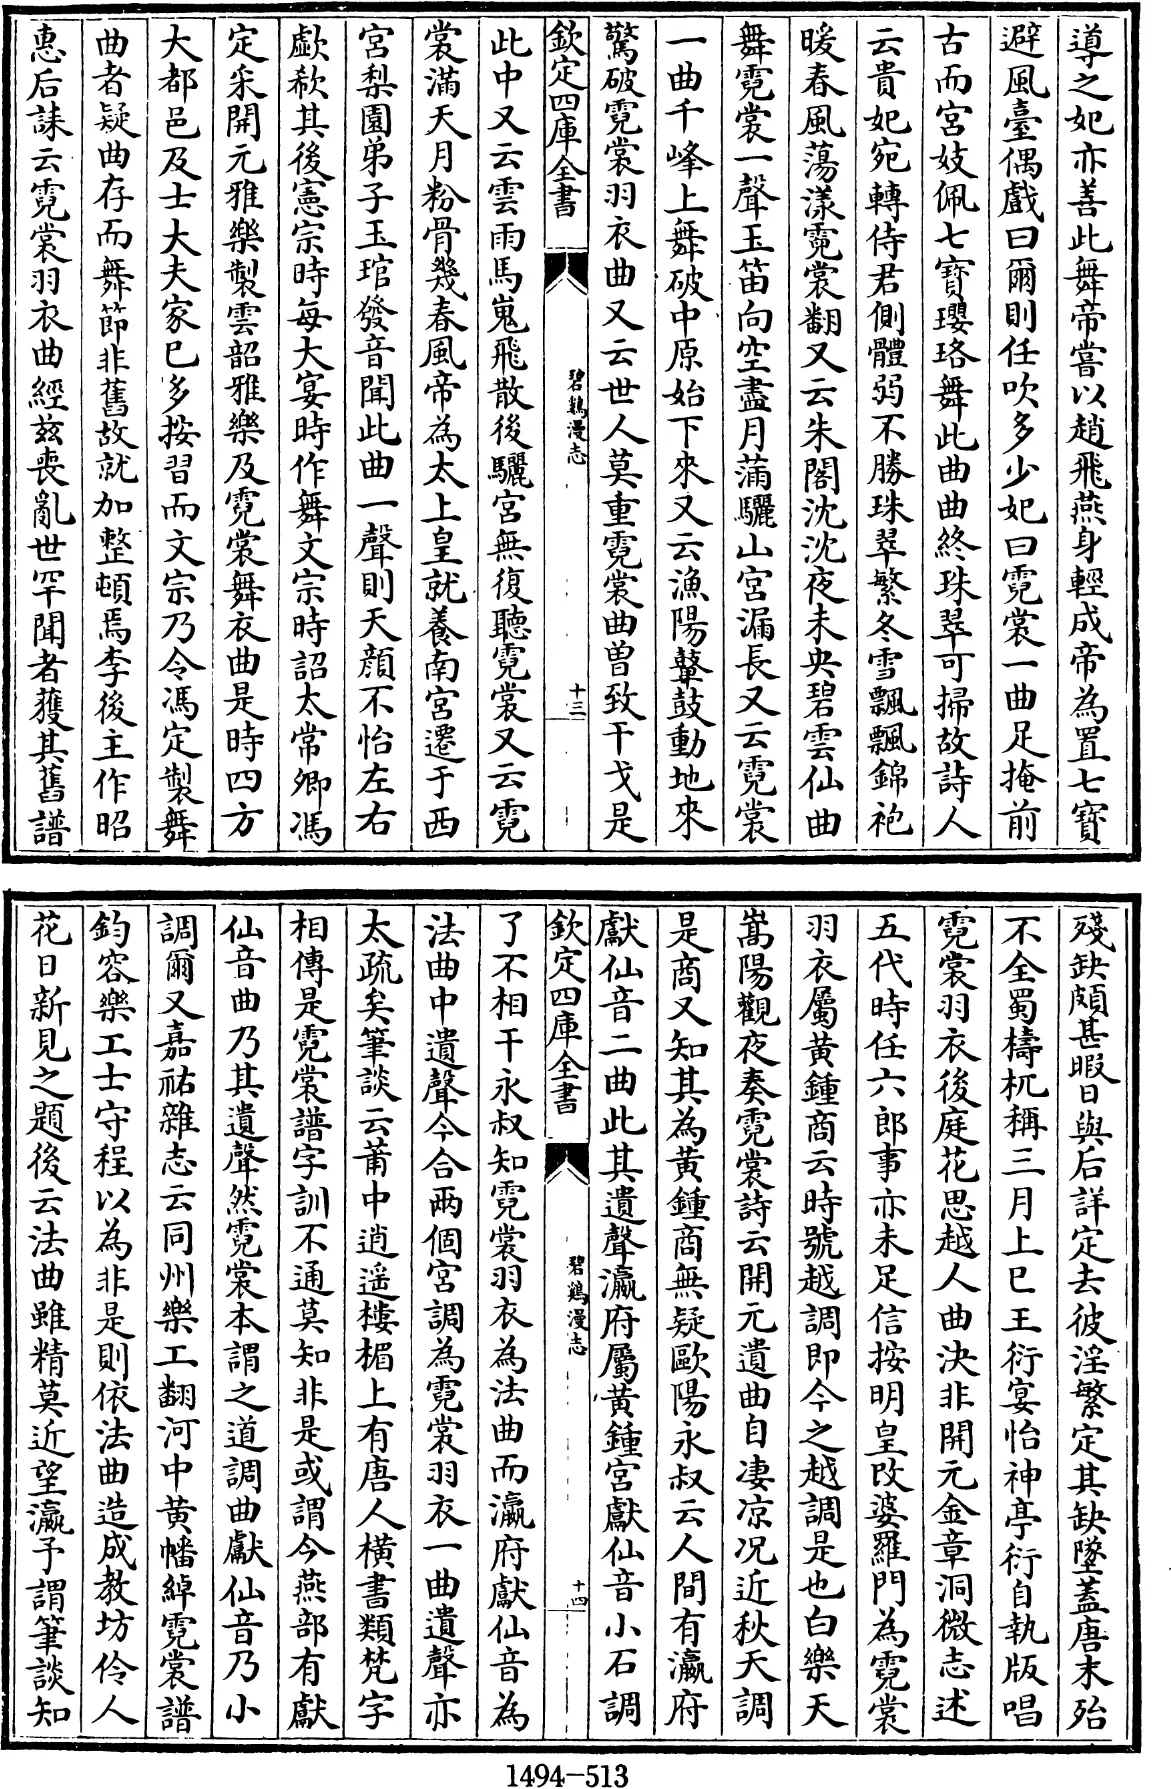 導之妃亦善此舞帝嘗以趙飛燕身輕成帝為置七寳
避風臺偶戲曰爾則任吹多少妃曰霓裳一曲足掩前
古而宮妓佩七寳瓔珞舞此曲曲終珠翠可掃故詩人
云貴妃宛轉侍君側體弱不勝珠翠繁冬雪飄飄錦袍
暖春風蕩漾霓裳翻又云朱閣沈沈夜未央碧雲仙曲
舞霓裳一聲玉笛向空盡月滿驪山宮漏長又云霓裳
一曲千峰上舞破中原始下來又云漁陽鼙鼓動地來
驚破霓裳羽衣曲又云世人莫重霓裳曲曽致干戈是
欽定四庫全書
碧鷄漫志
十三
此中又云雲雨馬嵬飛散後驪宮無復聽霓裳又云霓
裳滿天月粉骨幾春風帝為太上皇就養南宮遷于西
宮梨園弟子玉琯發音聞此曲一聲則天顔不怡左右
歔欷其後憲宗時每大宴時作舞文宗時詔太常卿馮
定采開元雅樂製雲韶雅樂及霓裳舞衣曲是時四方
大都邑及士大夫家已多按習而文宗乃令馮定製舞
曲者疑曲存而舞節非舊故就加整頓焉李後主作昭
惠后誄云霓裳羽衣曲經兹喪亂世罕聞者獲其舊譜
殘缺頗甚暇日與后詳定去彼淫繁定其缺墜蓋唐末殆
不全蜀檮杌稱三月上巳王衍宴怡神亭衍自執版唱
霓裳羽衣後庭花思越人曲決非開元金章洞微志述
五代時任六郎事亦未足信按明皇改婆羅門為霓裳
羽衣屬黄鍾商云時號越調即今之越調是也白樂天
嵩陽觀夜奏霓裳詩云開元遺曲自凄凉况近秋天調
是商又知其為黄鍾商無疑歐陽永叔云人間有瀛府
獻仙音二曲此其遺聲瀛府屬黄鍾宮獻仙音小石調
欽定四庫全書
碧鷄漫志
十四
了不相干永叔知霓裳羽衣為法曲而瀛府獻仙音為
法曲中遺聲今合兩個宮調為霓裳羽衣一曲遺聲亦
太疏矣筆談云莆中逍遥樓楣上有唐人橫書類梵字
相傳是霓裳譜字訓不通莫知非是或謂今燕部有獻
仙音曲乃其遺聲然霓裳本謂之道調曲獻仙音乃小
調爾又嘉祐雜志云同州樂工翻河中黄幡綽霓裳譜
鈞容樂工士守程以為非是則依法曲造成教坊伶人
花日新見之題後云法曲雖精莫近望瀛予謂筆談知
1494-513